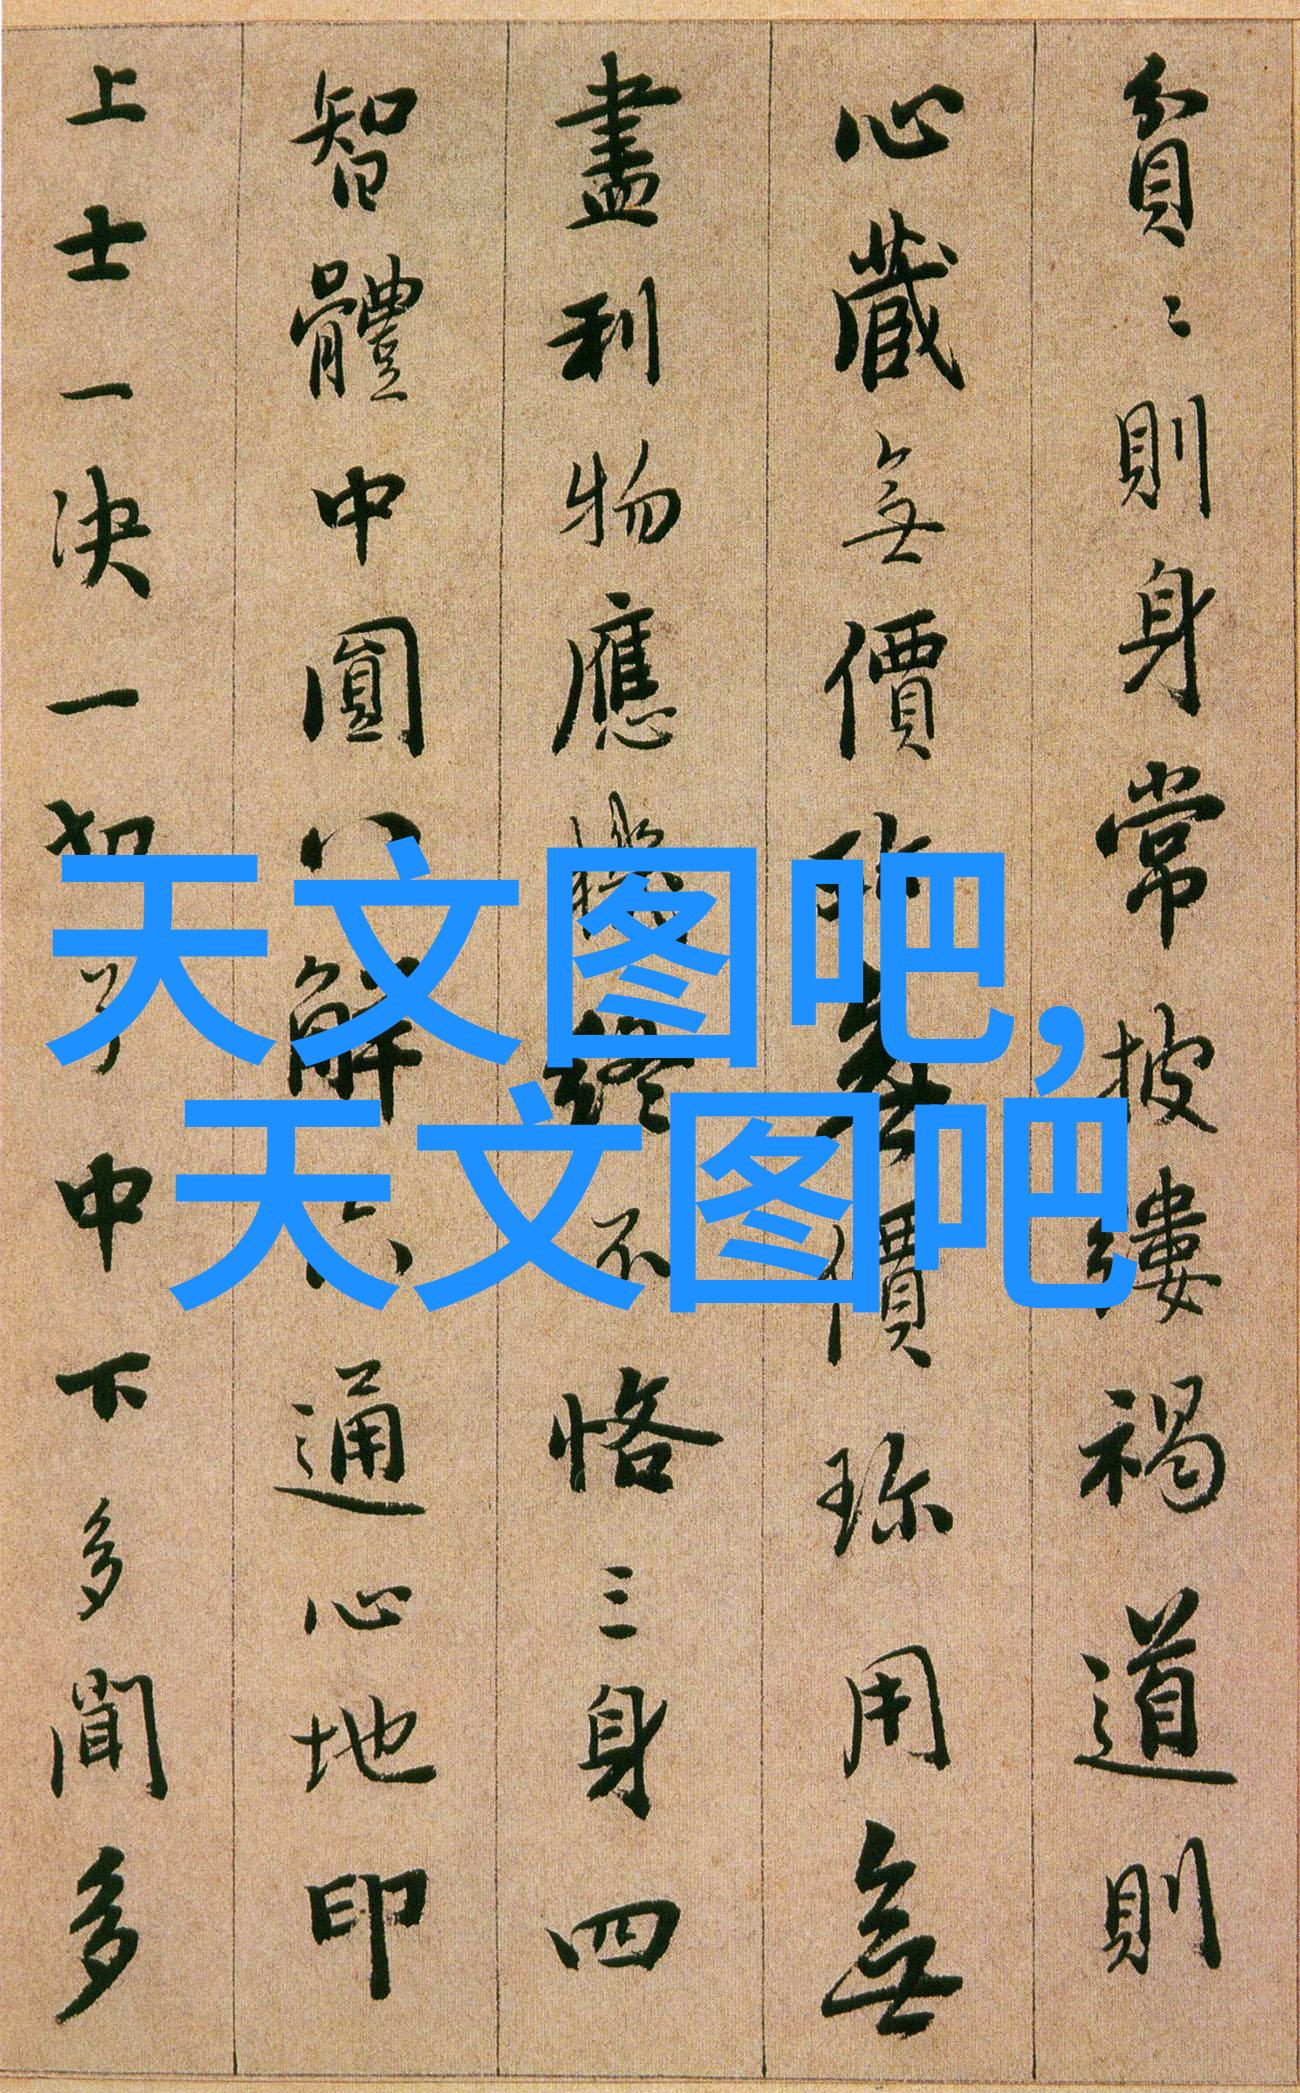 貧〻則身常披縷褐道則
心藏無價珎無價珎用無
盡利物應機終不恪三身四
智體中圓八解六通心地印
上士一決一切了中下多聞多
天文图吧,
天文图吧